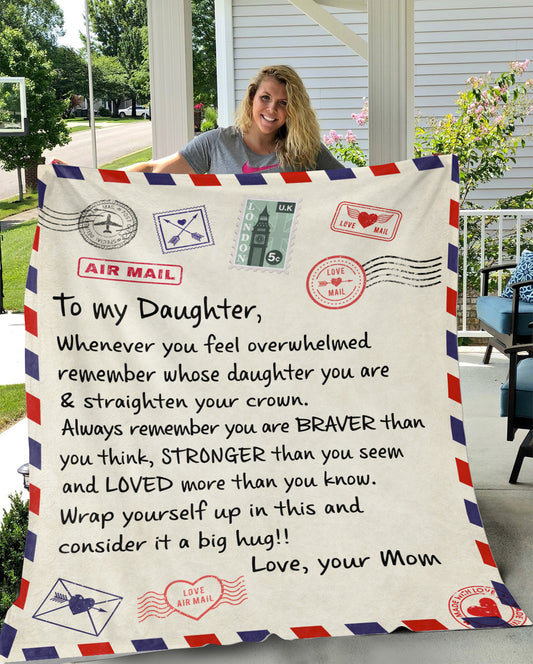 LONDON
U.K
5c
LOVE
MAIL
LOVE
MAIL
AIR MAIL
To my Daughter,
Whenever you feel overwhelmed
remember whose daughter you are
& straighten your crown.
Always remember you are BRAVER than
you think, STRONGER than you seem
and LOVED more than you know.
Wrap yourself up in this and
consider it a big hug!!
Love, your Mom
LOVE
AIR MAIL
MADE WITH LOVE